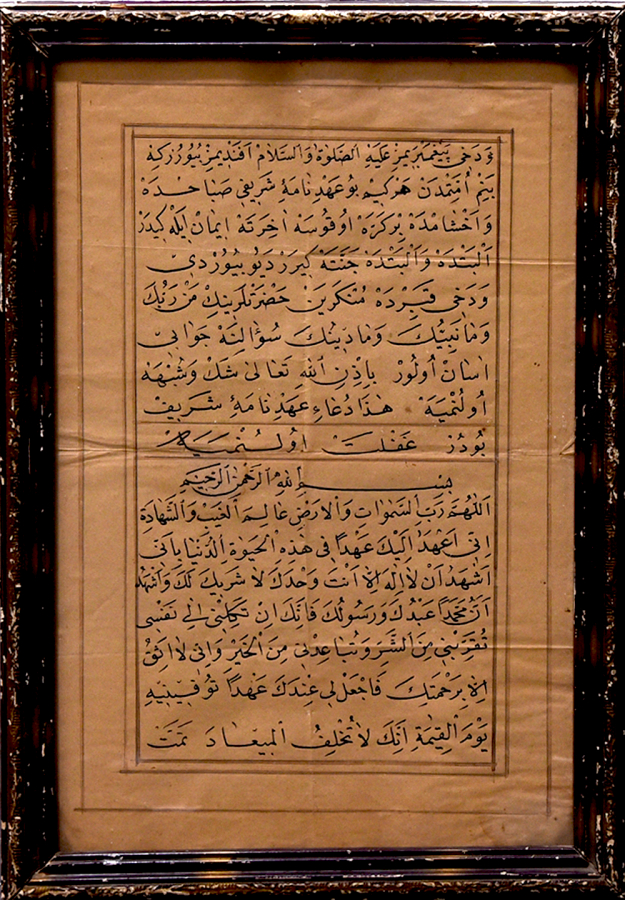 وَدَخِى پَيْغَمْبَرِيمِزْ عَلَيْهِ الصَّلٰوةُ وَالسَّلَامْ اَفَنْدِيمِزْ بُيُورُرْكِهْ
بَنِمْ اُمَّتِمْدَنْ هَرْكِيمْ بُو عَهْدِنَامَهٔ شَرِيفِى صَبَاحْدَهْ
وَاَخْشَامْدَهْ بِرْكَرَّهْ اُوقُوسَهْ اٰخِرَتَهْ اِيمَانْ اِيلَهْ كِيدَرْ
اَلْبَتْدَهْ وَاَلْبَتْدَهْ جَنَّتَهْ كِيرَرْ دَيُو بُيُورْدِىْ
وَدَخِى قَبِرْدَهْ مُنْكَرَيْنْ حَضْرَتْلَرِينِكْ مَنْ رَبُّكَ
وَمَا نَبِيُّكَ وَمَا دِينُكَ سُؤَالِنَهْ جَوَابِى
اٰسَانْ اُولُورْ بِاِذْنِ اللهِ تَعَالٰى شَكْ وَشُبْهَه
اُولُنْمَيَهْ هٰذَا دُعَاءِ عَهْدِنَامَهٔ شَرِيفْ
بُودُرْ غَفْلَتْ اُولُنْمَيَهْ
بِسْمِ اللهِ الرَّحْمٰنِ الرَّحِيمِ
اَللّٰهُمَّ رَبَّ السَّمٰوَاتِ وَالْاَرْضِ عَالِمَ الْغَيْبِ وَالشَّهَادَةِ
اِنِّى اَعْهَدُ اِلَيْكَ عَهْدًا فِى هٰذِهِ الْحَيٰوةِ الدُّنْيَا بِاَنِّى
اَشْهَدُ اَنْ لَا اِلٰهَ اِلَّا اَنْتَ وَحْدَكَ لَا شَرِيكَ لَكَ وَاَشْهَدُ
اَنَّ مُحَمَّدًا عَبْدُكَ وَرَسُولُكَ فَاِنَّكَ اِنْ تَكِلْنِى اِلٰى نَفْسِى
تُقَرِّبْنِى مِنَ الشَّرِّ وَتُبَاعِدْنِى مِنَ الْخَيْرِ وَاِنِّى لَا اَثِقُ
اِلَّا بِرَحْمَتِكَ فَاجْعَلْ لِى عِنْدَكَ عَهْدًا تُوَفِّينِيهِ
يَوْمَ الْقِيٰمَةِ اِنَّكَ لَا تُخْلِفُ الْمِيعَادَ تَمَّتْ